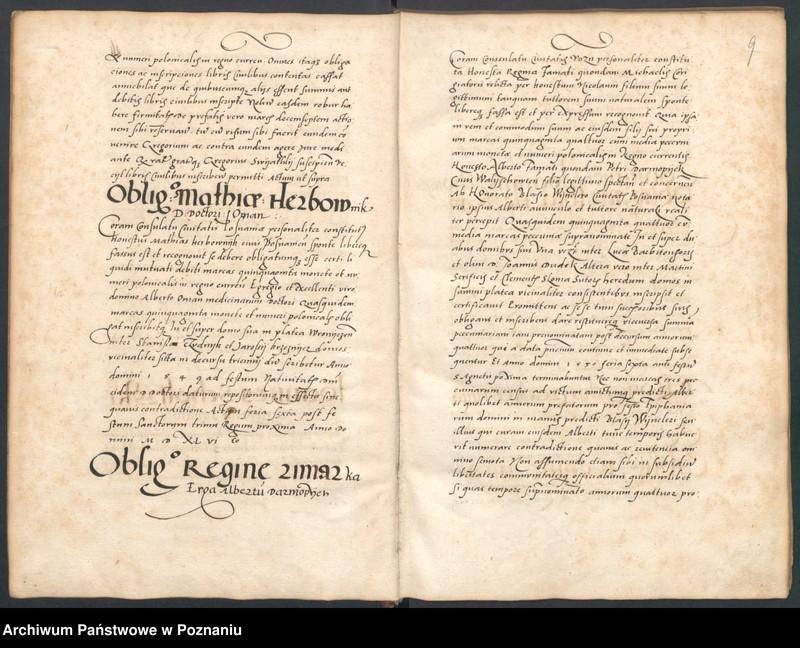 numeri polonicalis in regno curren Omnes itaqs obliga
ciones ac inscripciones libris civilibus contentas cassat
annichilat que de quibuscunqs alijs essent summis aut
debitis libris civilibus inscripte Nolens easdem robur ha
bere firmitatis de prefatis vero marcis decemseptem actio
nem sibi reservavit
venire Gregorium ac contra eundem agere jure medi
ante Gregorius suscipien de
libris civilibus inscribere permitti Actum ut supra
Oblig:o Mathiæ Herbow nik
D. Doctori Opian
Coram Consulatu civitatis Posnaniæ personaliter constitut
Honestus Mathias herbownik civis Posnanien sponte libereqs
fassus est et recognovit se debere obligatumqs esse certi li
quidi mutuati debiti marcas quinquaginta monete et nu
meri polonicalis in regno curren Egregio et Excellenti viro
domino Alberto Opian medicinarum Doctori Quasquidem
marcas quinquaginta monete et numeri polonicalis obli
gat inscribitqs In et super domo sua in platea Wroniecen
inter Stanislai et Jarosij domos
vicinaliter sita in decursu triennij
domini 1 5 4 9 ad festum Nativitatis
eidem D Doctori daturum repositurumqs in effectu sine
quavis contradictione Actum feria sexta post fe
stum Sanctorum trium Regum proxima Anno Do
mini M D XL VI to
Oblig:o Regine Rimar ka
Erga Albertu Darmopijen
9
Coram Consulatu Civitatis Pozn personaliter constitu
ta Honesta Regina Famati quondam Michaelis Cori
giatoris relicta per honestum Nicolaum filium suum le
gittimum tanquam tutorem suum naturalem sponte
libereqs fassa est et per Expressum recognovit Quia ipsa
in rem et commodum suum ac eiusdem filij sui propri
um marcas quinquaginta quattuor cum media pecuni
arum monete et numeri polonicalis in Regno currentis
Honesto Alberto Famati quondam Petri Darmopijek
Civis Walijschovien filio legittimo spectan et concernen
Ab Honorato Blasio Wijnkler Civitatis Posnanie nota
rio ipsius Alberti avunculo et tutore naturali reali
ter percepit Quasquidem quinquaginta quattuor cum
media marcas pecuniarum supranominatas In et super du
abus domibus suis Una vero inter Luce Barbitonsoris
et olim D. Joannis Dudek Altera vero inter Martini
Serificis et Clementis Slonia Sutoris heredum domos in
summi platea vicinaliter consistentibus inscripsit et
certificavit Promittens ac sese cum successoribus suis
obligans et inscribens dare restituereqs viceversa summa
pecuniariam iam prenominatam post decursum annorum
quattuor que a data presentium continue et immediate subse
quentur Et Anno domini 1 5 5 0 feria sexta ante festum
S Agnetis proxima terminabuntur Nec non marcas tres pe
cuniarum census ad victum amictumqs predicti Alber
ti quolibet annorum prefatorum pro festo Epiphania
rum domini in manus predicti Blasij Wijncleri seu
illius qui curam eiusdem Alberti tunc temporis habue
rit numerare contradictione quavis ac renitentia om
nino semota Non assumendo etiam sibi in subsidium
libertates communitateqs officialium quorumlibet
si quas tempore suprnominato annorum quattuor pro
Archiwum Państwowe w Poznaniu